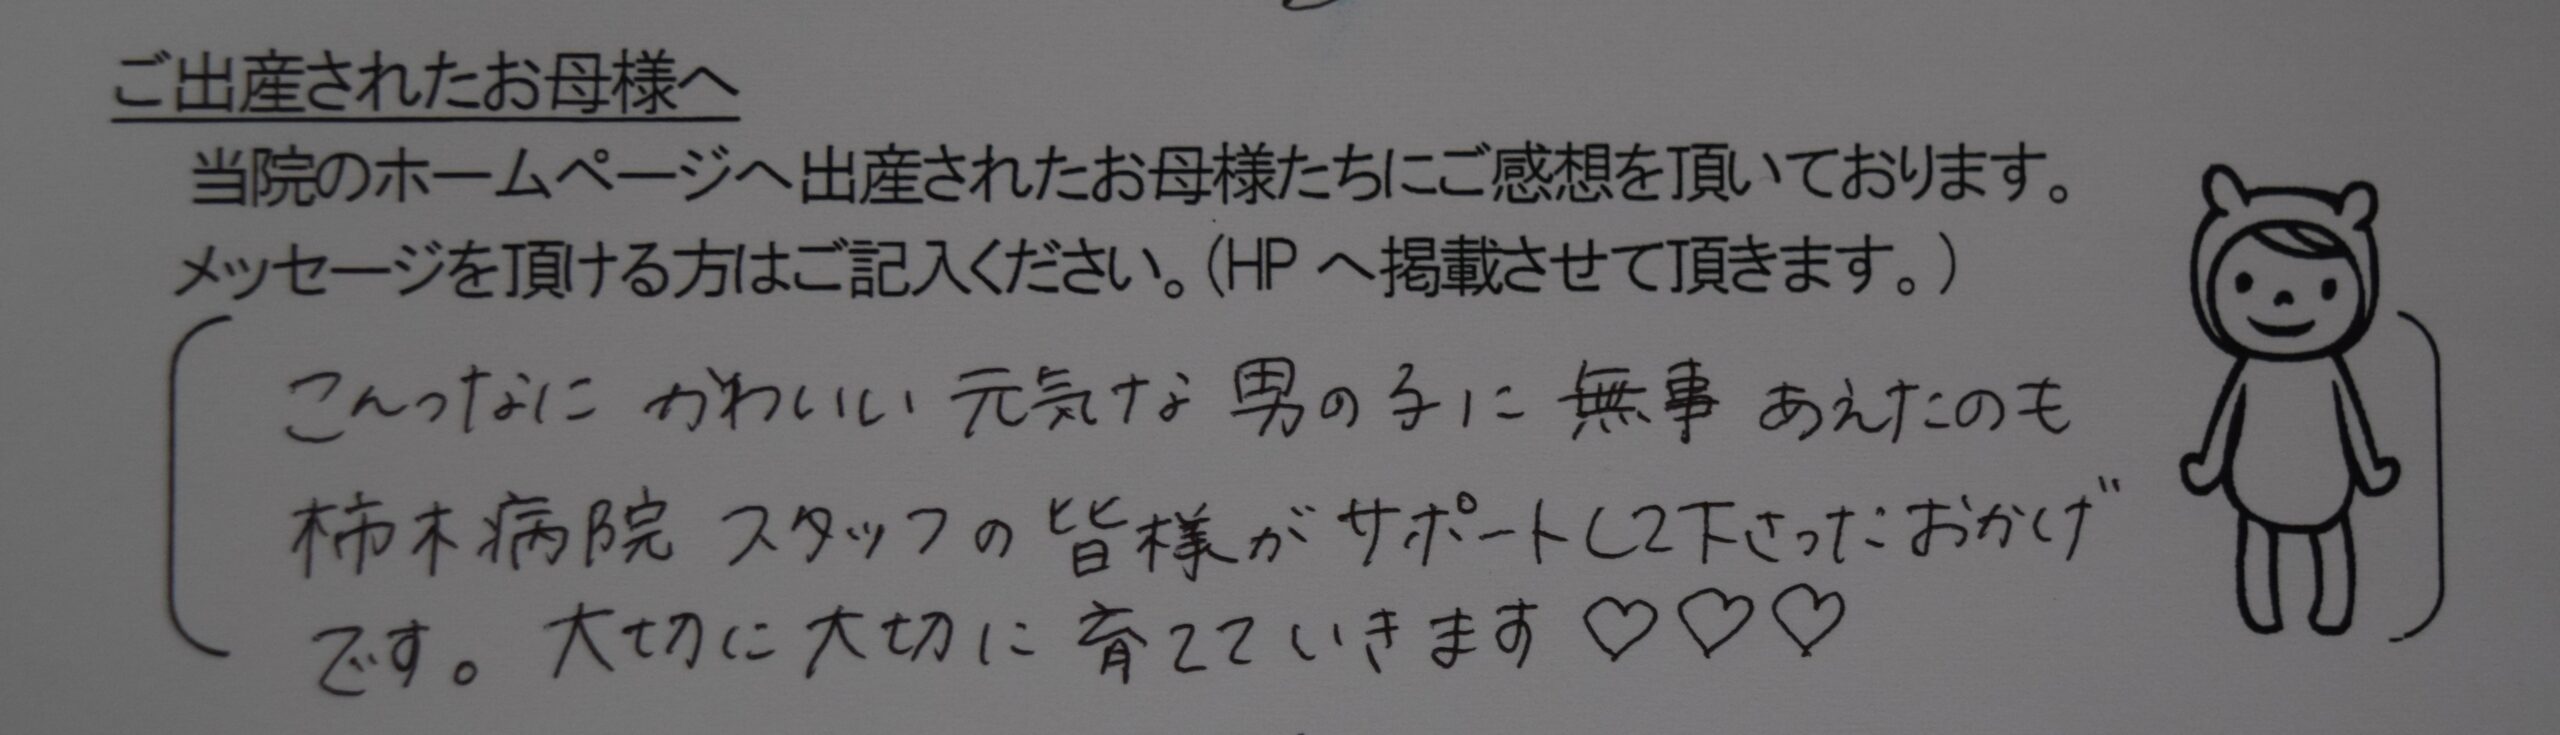 ご出産されたお母様へ
当院のホームページへ出産されたお母様たちにご感想を頂いております。
メッセージを頂ける方はご記入ください。（HP へ掲載させて頂きます。）
こんっなに かわいい 元気な 男の子に 無事 あえたのも
柿木病院 スタッフの 皆様が サポートして下さった おかげ
です。大切に大切に 育てていきます♡♡♡